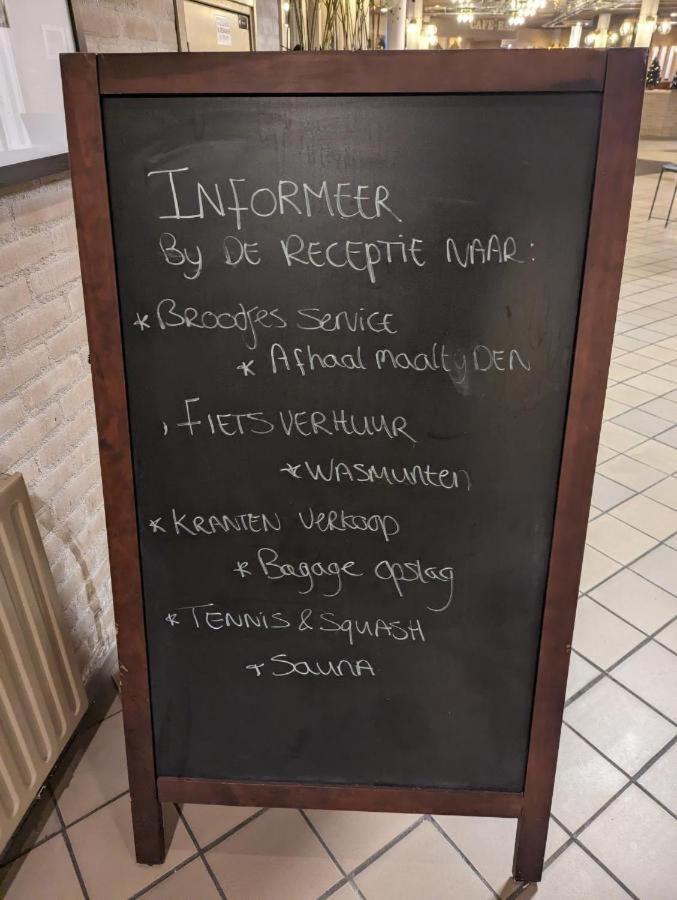 CAFE-R
INFORMEER
By DE RECEPTIE NAAR:
* Broodjes Service
* Afhaal maaltyDEN
, FIETSVERHUUR
* WASMUNTEN
* KRANTEN VERKOOP
* Bagage opslag
* TENNIS & SQUASH
+ SAUNA